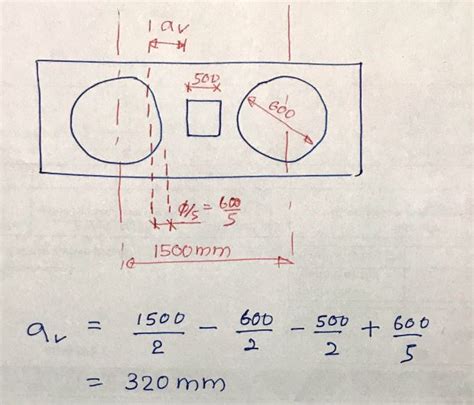 av
500
600
ϕ/5 = 600/5
1500mm
av = 1500/2 - 600/2 - 500/2 + 600/5
= 320 mm